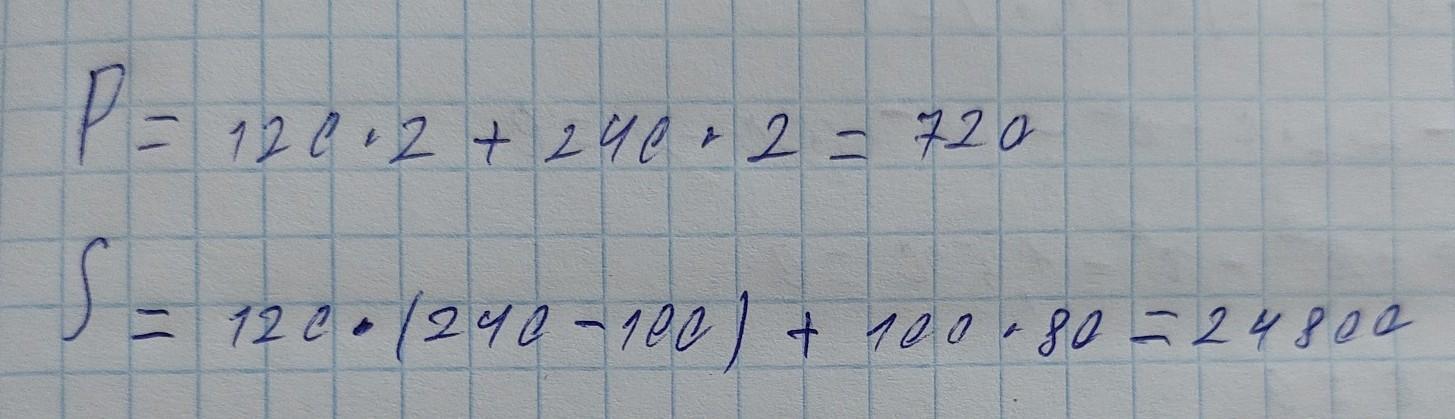 P = 120 · 2 + 240 · 2 = 720
S = 120 · (240 - 100) + 100 · 80 = 24800